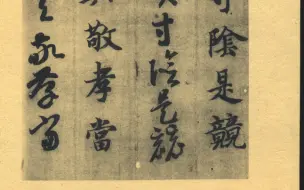 寸陰是競
寸陰是競
敬孝當
敬孝當